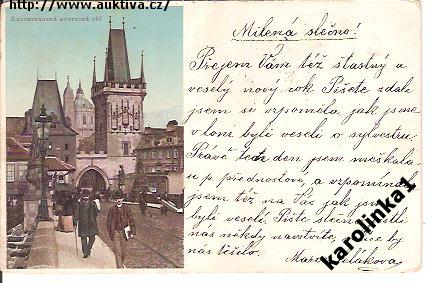 http://www.auktiva.cz/
MALOSTRANSKÁ MOSTECKÁ VĚŽ
Milená slečno!
Přejem Vám též šťastný a
veselý nový rok Píšete zdali
jsem si vzpoměla, jak jsme
v loni byli veselí o sylvestru.
Právě ten den jsem meškala
u p přednostova, a vzpomínala
jsem též na Vás jak jsme
byli veselí. Pište slečno
nás někdy navštvíte, by
nás těšilo.
karolinka1